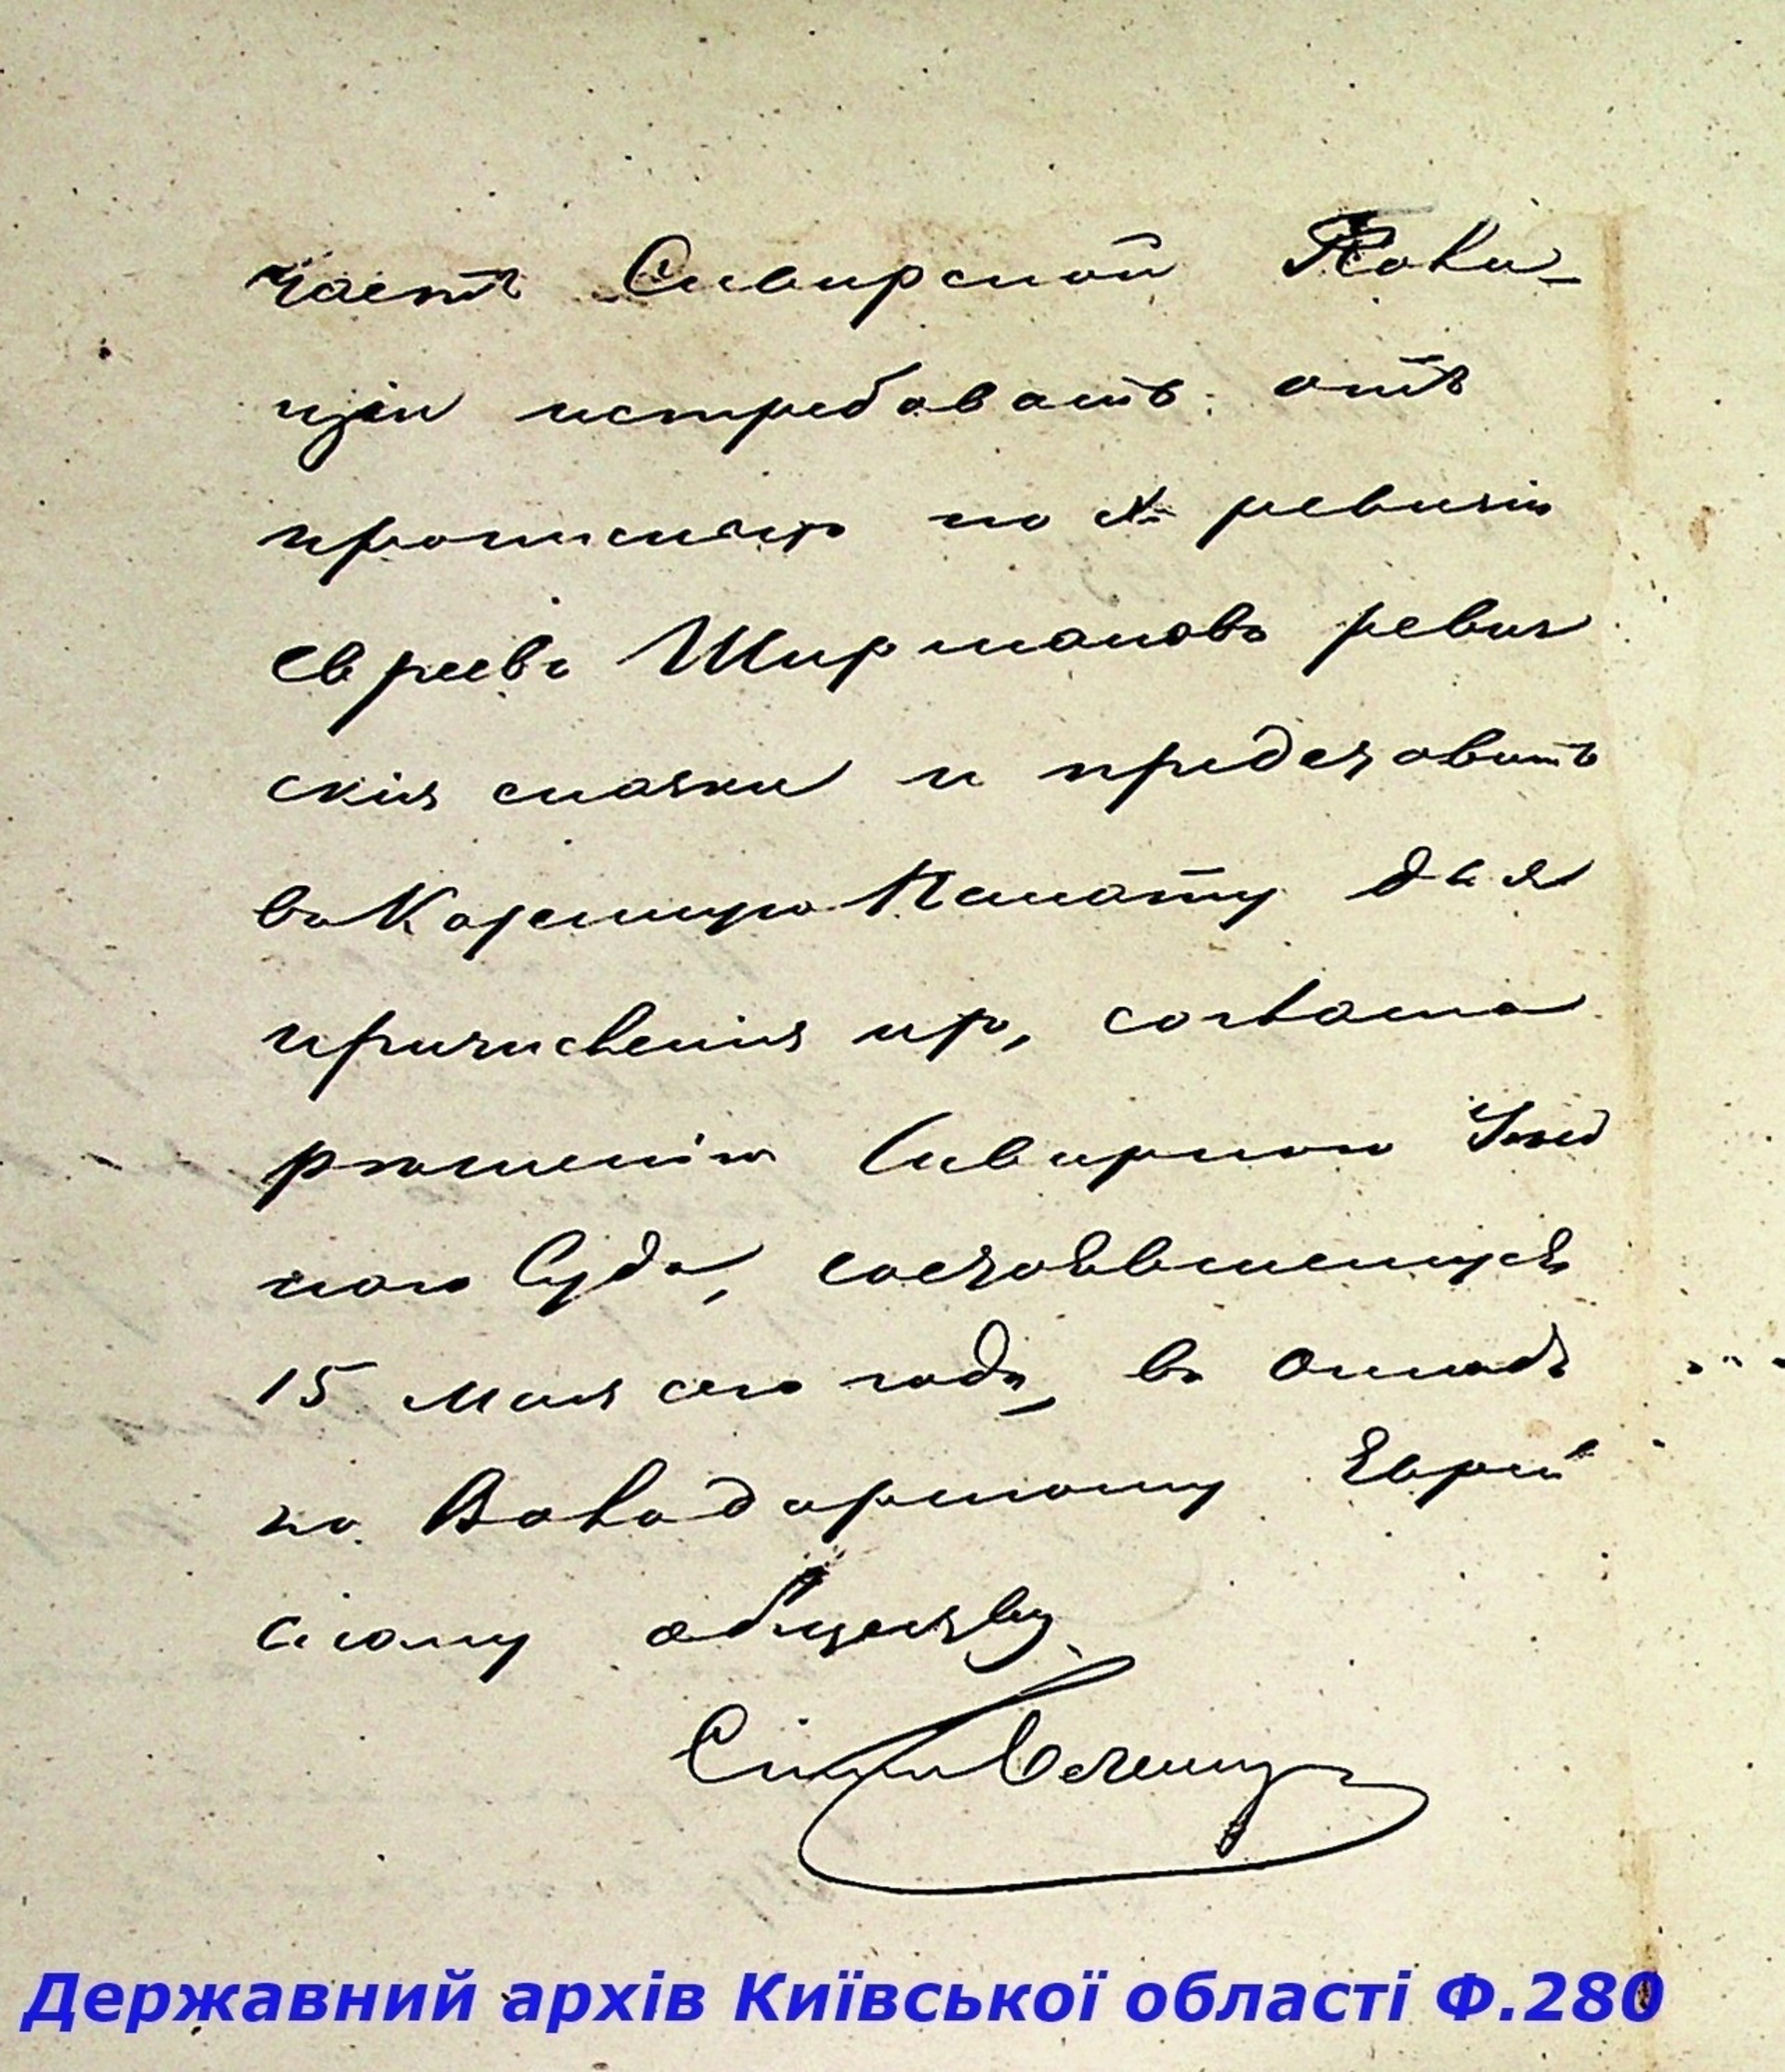 части Сквирской Поли-
ціи истребовать отъ
прописныхъ по X ревизіи
евреевъ Ширмановъ ревиз
скія сказки и представить
въ Казенную Палату для
причисленія ихъ, согласно
решенію Сквирского Уезд
ного Суда, состоявшемуся
15 мая сего года, въ окладъ
по Володарскому Еврей
скому обществу
Державний архів Київської області Ф.280